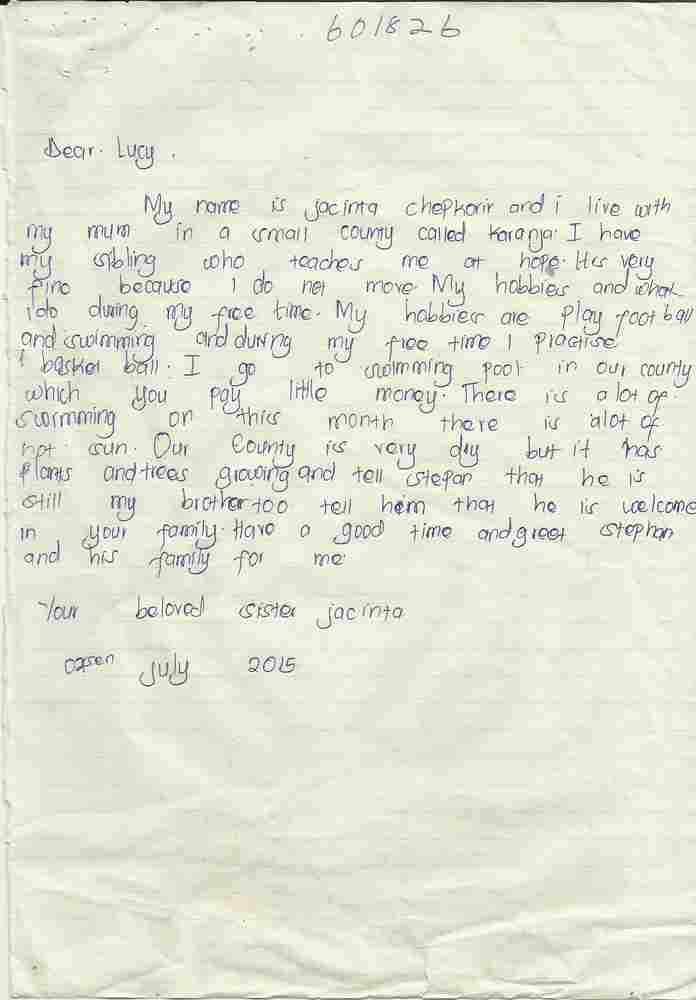 601826
Dear. Lucy.
My name is jacinta chepkorir and i live with
my mum in a small county called Karanja. I have
my sibling who teaches me at hope. His very
fine because I do not move. My hobbies and what
i do during my free time. My hobbies are play foot ball
and swimming and during my free time I practise
basket ball. I go to swimming pool in our county
which you pay little money. There is a lot of
swimming on this month there is alot of
hot sun. Our County is very dry but it has
Plants and trees growing and tell stepan that he is
still my brother too tell him that he is welcome
in your family. Have a good time and greet stephan
and his family for me.
Your beloved sister jacinta
july 2015